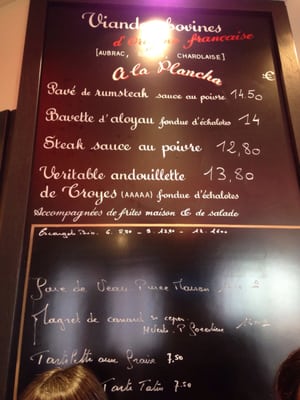 Viandes bovines
d'origine française
[AUBRAC, CHAROLAISE]
A la Plancha
€
Pavé de rumsteak sauce au poivre 14.50
Bavette d'aloyau fondue d'échalotes 14
Steak sauce au poivre 12,80
Veritable andouillette 13,80
de Troyes (AAAAA) fondue d'échalotes
Accompagnées de frites maison & de salade
de Veau Puree Maison
Magret de canard
Tartelette aux Fraises 7.50
Tarte Tatin 7.50